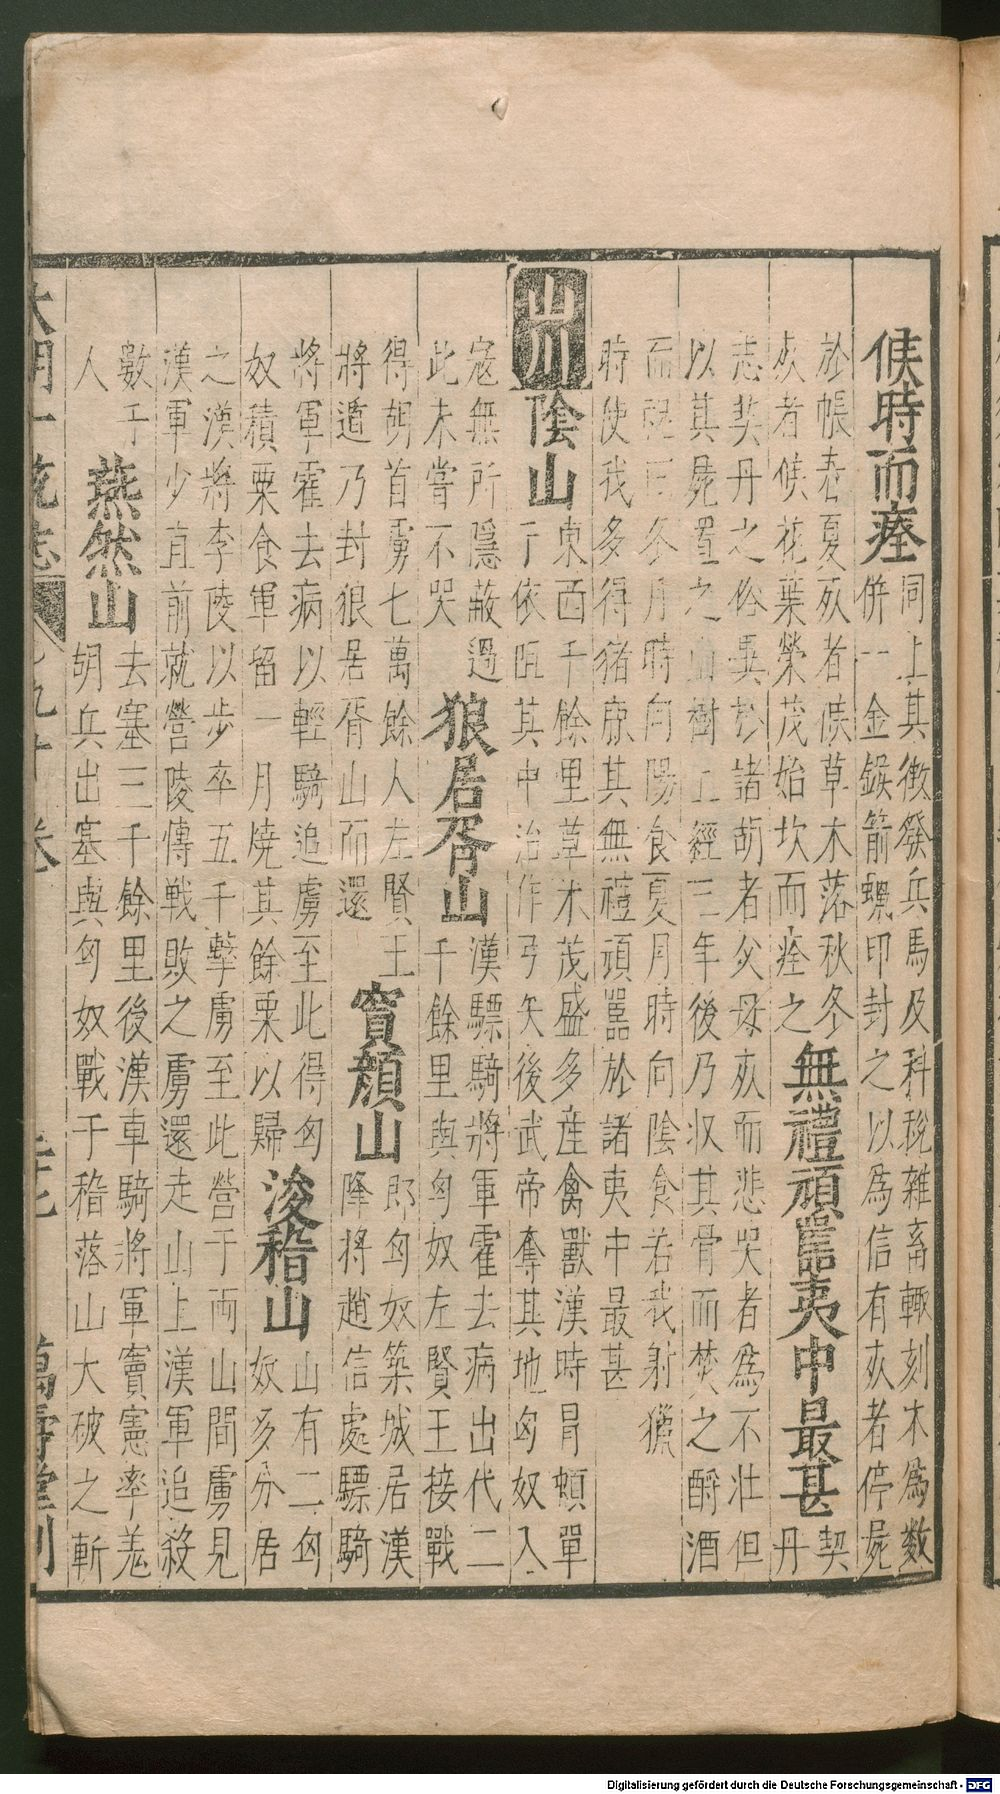 候時而瘞 同上其徵發兵馬及科稅雜畜輒刻木爲數
併一金鏃箭蠟印封之以爲信有死者停屍
於帳春夏死者候草木落秋冬
死者候花葉榮茂始坎而瘞之 無禮頑嚚夷中最甚 契
丹
志契丹之俗異於諸胡者父母死而悲哭者爲不壯但
以其屍置之山樹上經三年後乃収其骨而焚之酹酒
而祝曰冬月時向陽食夏月時向陰食若我射獵
時使我多得猪鹿其無禮頑嚚於諸夷中最甚
山川 陰山 東西千餘里草木茂盛多產禽獸漢時冒頓單
于依阻其中治作弓矢後武帝奪其地匈奴入
寇無所隱蔽過
此未嘗不哭 狼居胥山 漢驃騎將軍霍去病出代二
千餘里與匈奴左賢王接戰
得胡首虜七萬餘人左賢王
將遁乃封狼居胥山而還 窴顏山 郎匈奴築城居漢
降將趙信處驃騎
將軍霍去病以輕騎追虜至此得匈
奴積粟食軍留一月燒其餘粟以歸 浚稽山 山有二匈
奴多分居
之漢將李陵以步卒五千擊虜至此營于兩山間虜見
漢軍少直前就營陵傳戰敗之虜還走山上漢軍追殺
數千
人 燕然山 去塞三千餘里後漢車騎將軍竇憲率羗
胡兵出塞與匈奴戰于稽落山大破之斬
大明一統志 九十卷 萬壽堂刊
Digitalisierung gefördert durch die Deutsche Forschungsgemeinschaft - DFG